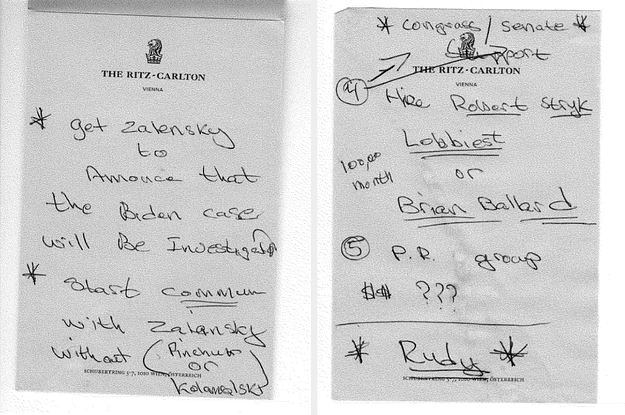 THE RITZ-CARLTON
VIENNA
* get Zalensky
to
Annouce that
the Biden case
will Be Investigated
* Start commun
with Zalansky
without (Pinchuk
or
Kolamoisky)
SCHUBERTRING 5-7, 1010 WIEN, ÖSTERREICH
* Congrass / Senate *
THE RITZ-CARLTON
VIENNA
4 Hire Robert Stryk
Lobbiest
100,00
month
or
Brian Ballard
5 P.R. group
$$ ???
* Rudy *
SCHUBERTRING 5-7, 1010 WIEN, ÖSTERREICH